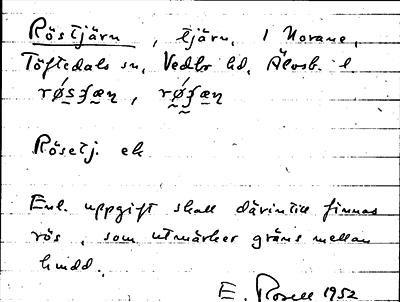 Röstjärn, tjärn, i Norane,
Töftedals sn, Vedbo hd, Älvsb. l
røsʃæn, røʃæn
Rösetj. ek
Enl. uppgift skall därintill finnas
rös, som utmärker gräns mellan
hmdd.
E. Rosell 1952